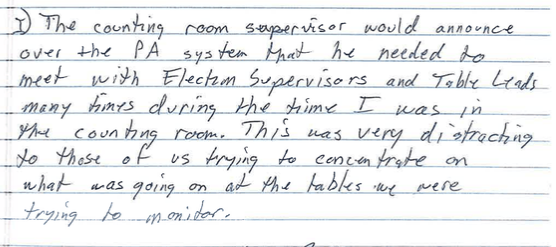 I) The counting room supervisor would announce
over the PA system that he needed to
meet with Election Supervisors and Table Leads
many times during the time I was in
the counting room. This was very distracting
to those of us trying to concentrate on
what was going on at the tables we were
trying to monitor.